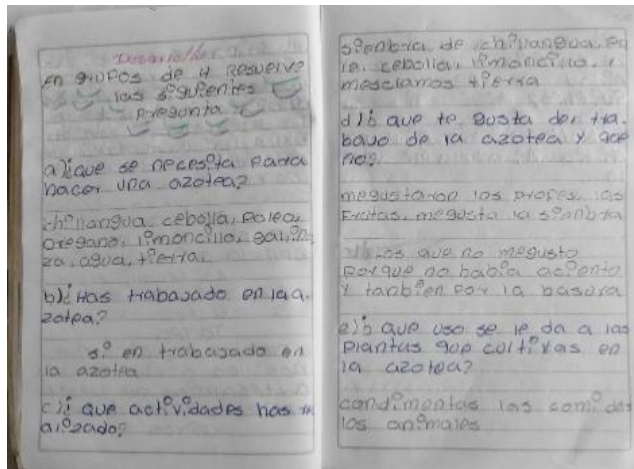 Desarrollo
en grupos de 4 Resuelve
las siguientes
pregunta
a)¿que se necesita para
hacer una azotea?
chillangua cebolla, Poleo,
oregano, limoncillo,
za, agua, tierra
b)¿Has trabajado en la a
zotea?
si en trabajado en
la azotea
c)¿ que actividades has re
alizado?
sienbra de chillangua, en
le, cebolla, limoncillo, i
mesclamos tierra
d)¿ que te gusta del tra
bajo de la azotea y que
no?
megustaron los profes, las
frutas, megusta la sienbra
los que no megusto
porque no habia aciento
y tanbien por la basura
e)¿ que uso se le da a las
plantas que cultivas en
la azotea?
condimentas las comidas
los animales